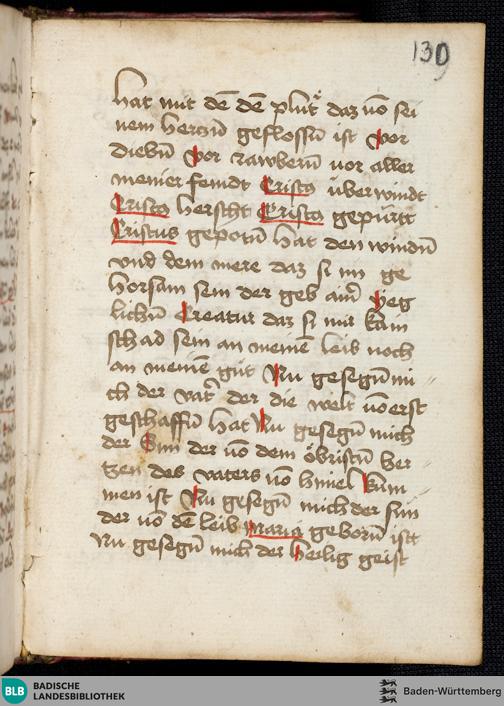 130
hat mit dē dē plut daz uō sei
nem hertzn̄ geflossn̄ ist vor
diebn̄ vor rawbern̄ vor aller
menier feindt Cristo überwindt
Cristo herscht Cristo gepürtt
Cristus gepotn̄ hat den windn̄
vnd dem mere daz si im ge
horsam sein der geb ain̄ yeg
lichn̄ Creatur daz si mir kain
schad sein an meinē leib noch
an meinē güt Nu gesegn̄ mi
ch der vatr̄ der die welt uō erst
geschaffn̄ hat Nu gesegn̄ mich
der Sun der uō dem öbristn̄ her
tzen des vaters uō himel kūm
men ist Nu gesegn̄ mich der sun
der uō dē leib maria geborn̄ ist
Nu gesegn̄ mich der heilig geist
BLB BADISCHE
LANDESBIBLIOTHEK
Baden-Württemberg